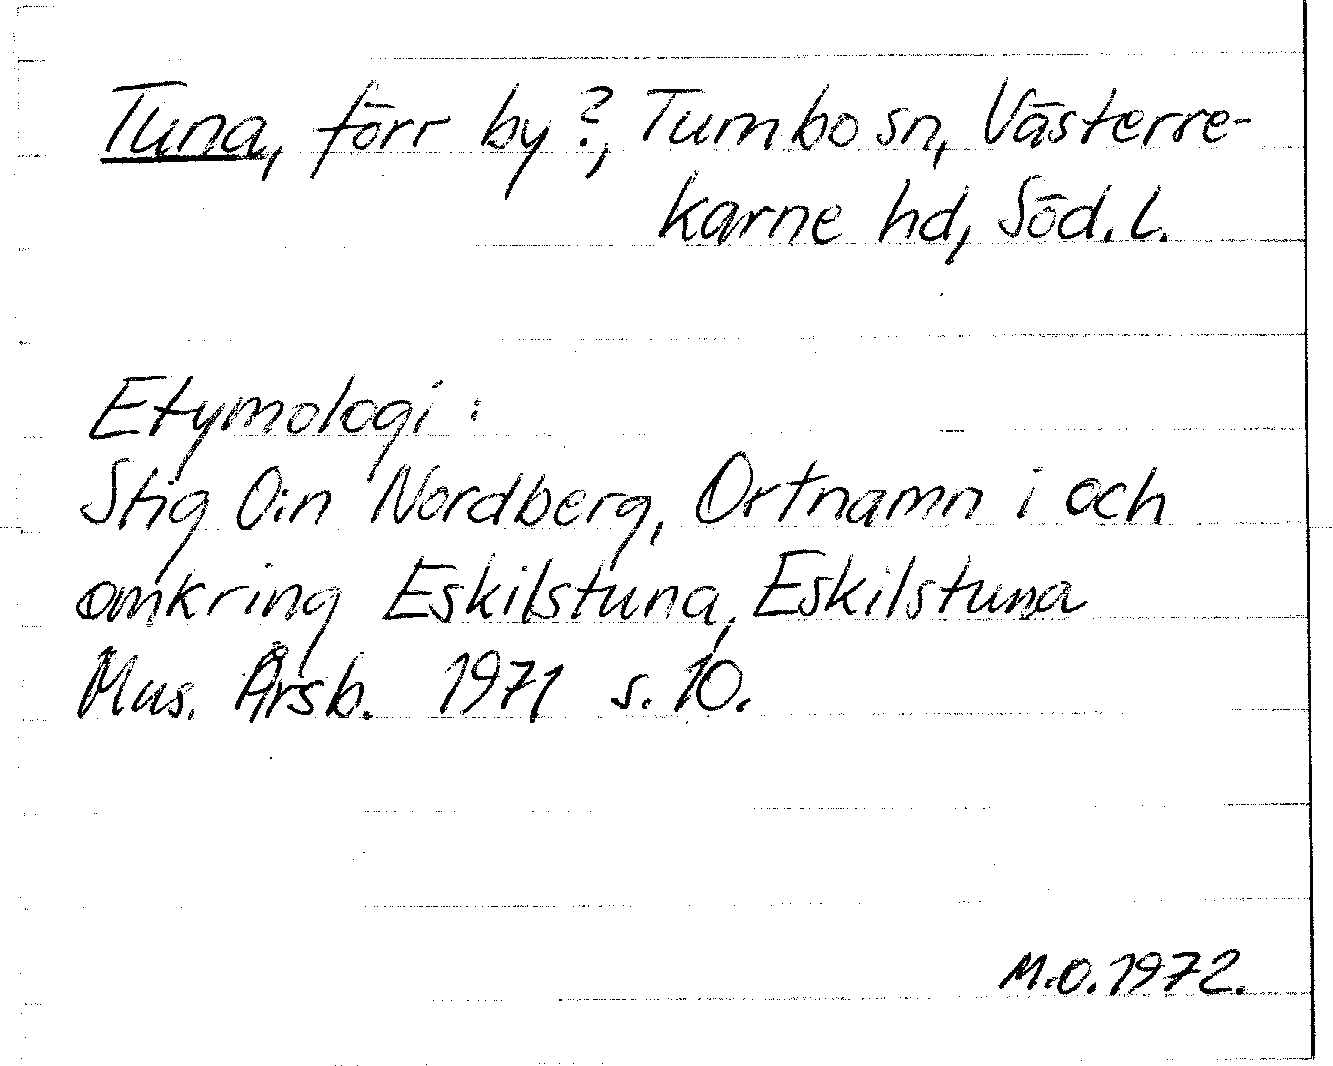 Tuna, förr by?, Tumbo sn, Västerre-
karne hd, Söd.l.
Etymologi:
Stig O:n Nordberg, Ortnamn i och
omkring Eskilstuna, Eskilstuna
Mus. Årsb. 1971 s. 10.
M.O. 1972.